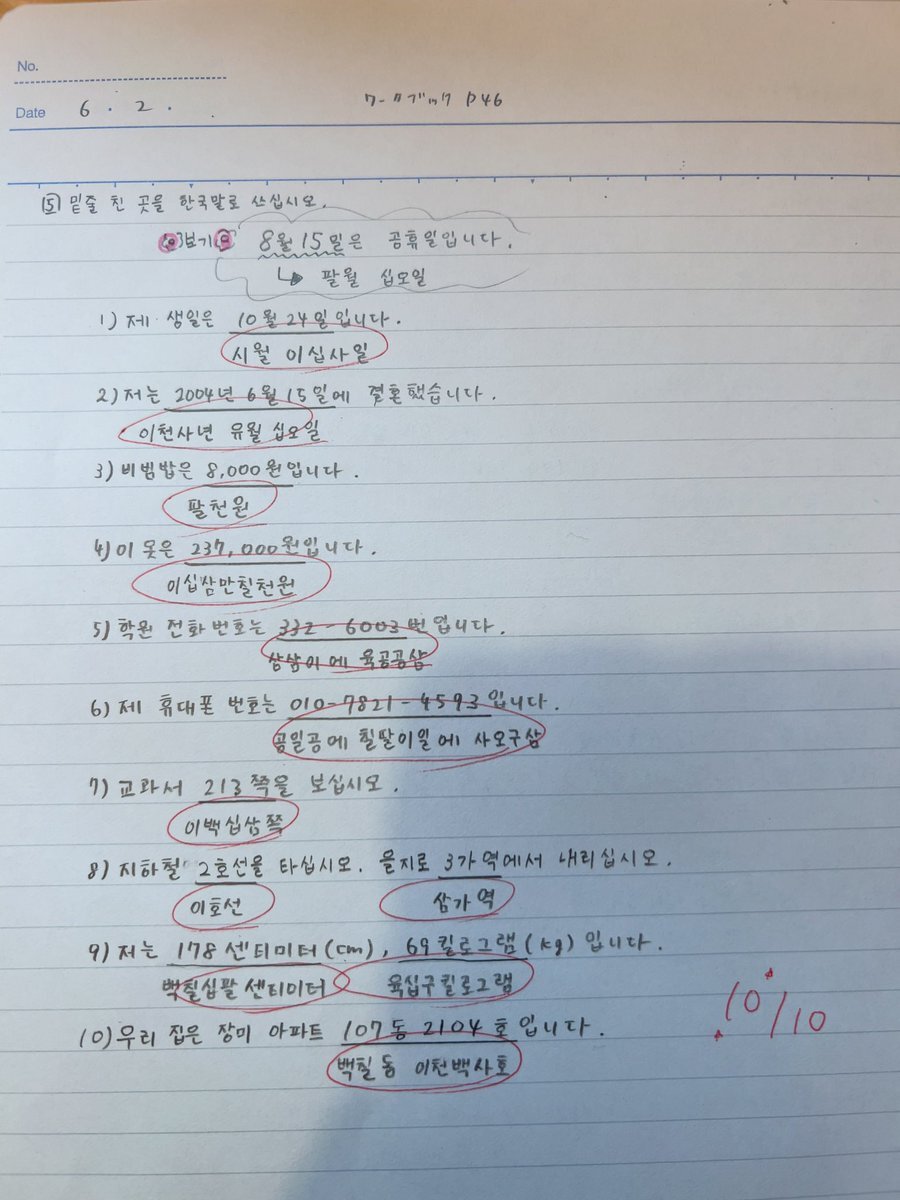 No.
Date 6 . 2 . ワークブック P46
[5] 밑줄 친 곳을 한국말로 쓰십시오.
보기 8월 15일은 공휴일입니다.
↳ 팔월 십오일
1) 제 생일은 10월 24일입니다.
시월 이십사일
2) 저는 2004년 6월 15일에 결혼했습니다.
이천사년 유월 십오일
3) 비빔밥은 8,000원입니다.
팔천원
4) 이 옷은 237,000원입니다.
이십삼만칠천원
5) 학원 전화 번호는 332-6003번입니다.
삼삼이에 육공공삼
6) 제 휴대폰 번호는 010-7821-4593입니다.
공일공에 칠팔이일에 사오구삼
7) 교과서 213쪽을 보십시오.
이백십삼쪽
8) 지하철 2호선을 타십시오. 을지로 3가역에서 내리십시오.
이호선 삼가역
9) 저는 178센티미터(cm), 69킬로그램(kg)입니다.
백칠십팔센티미터 육십구킬로그램
10) 우리 집은 장미 아파트 107동 2104호입니다.
백칠동 이천백사호
10/10